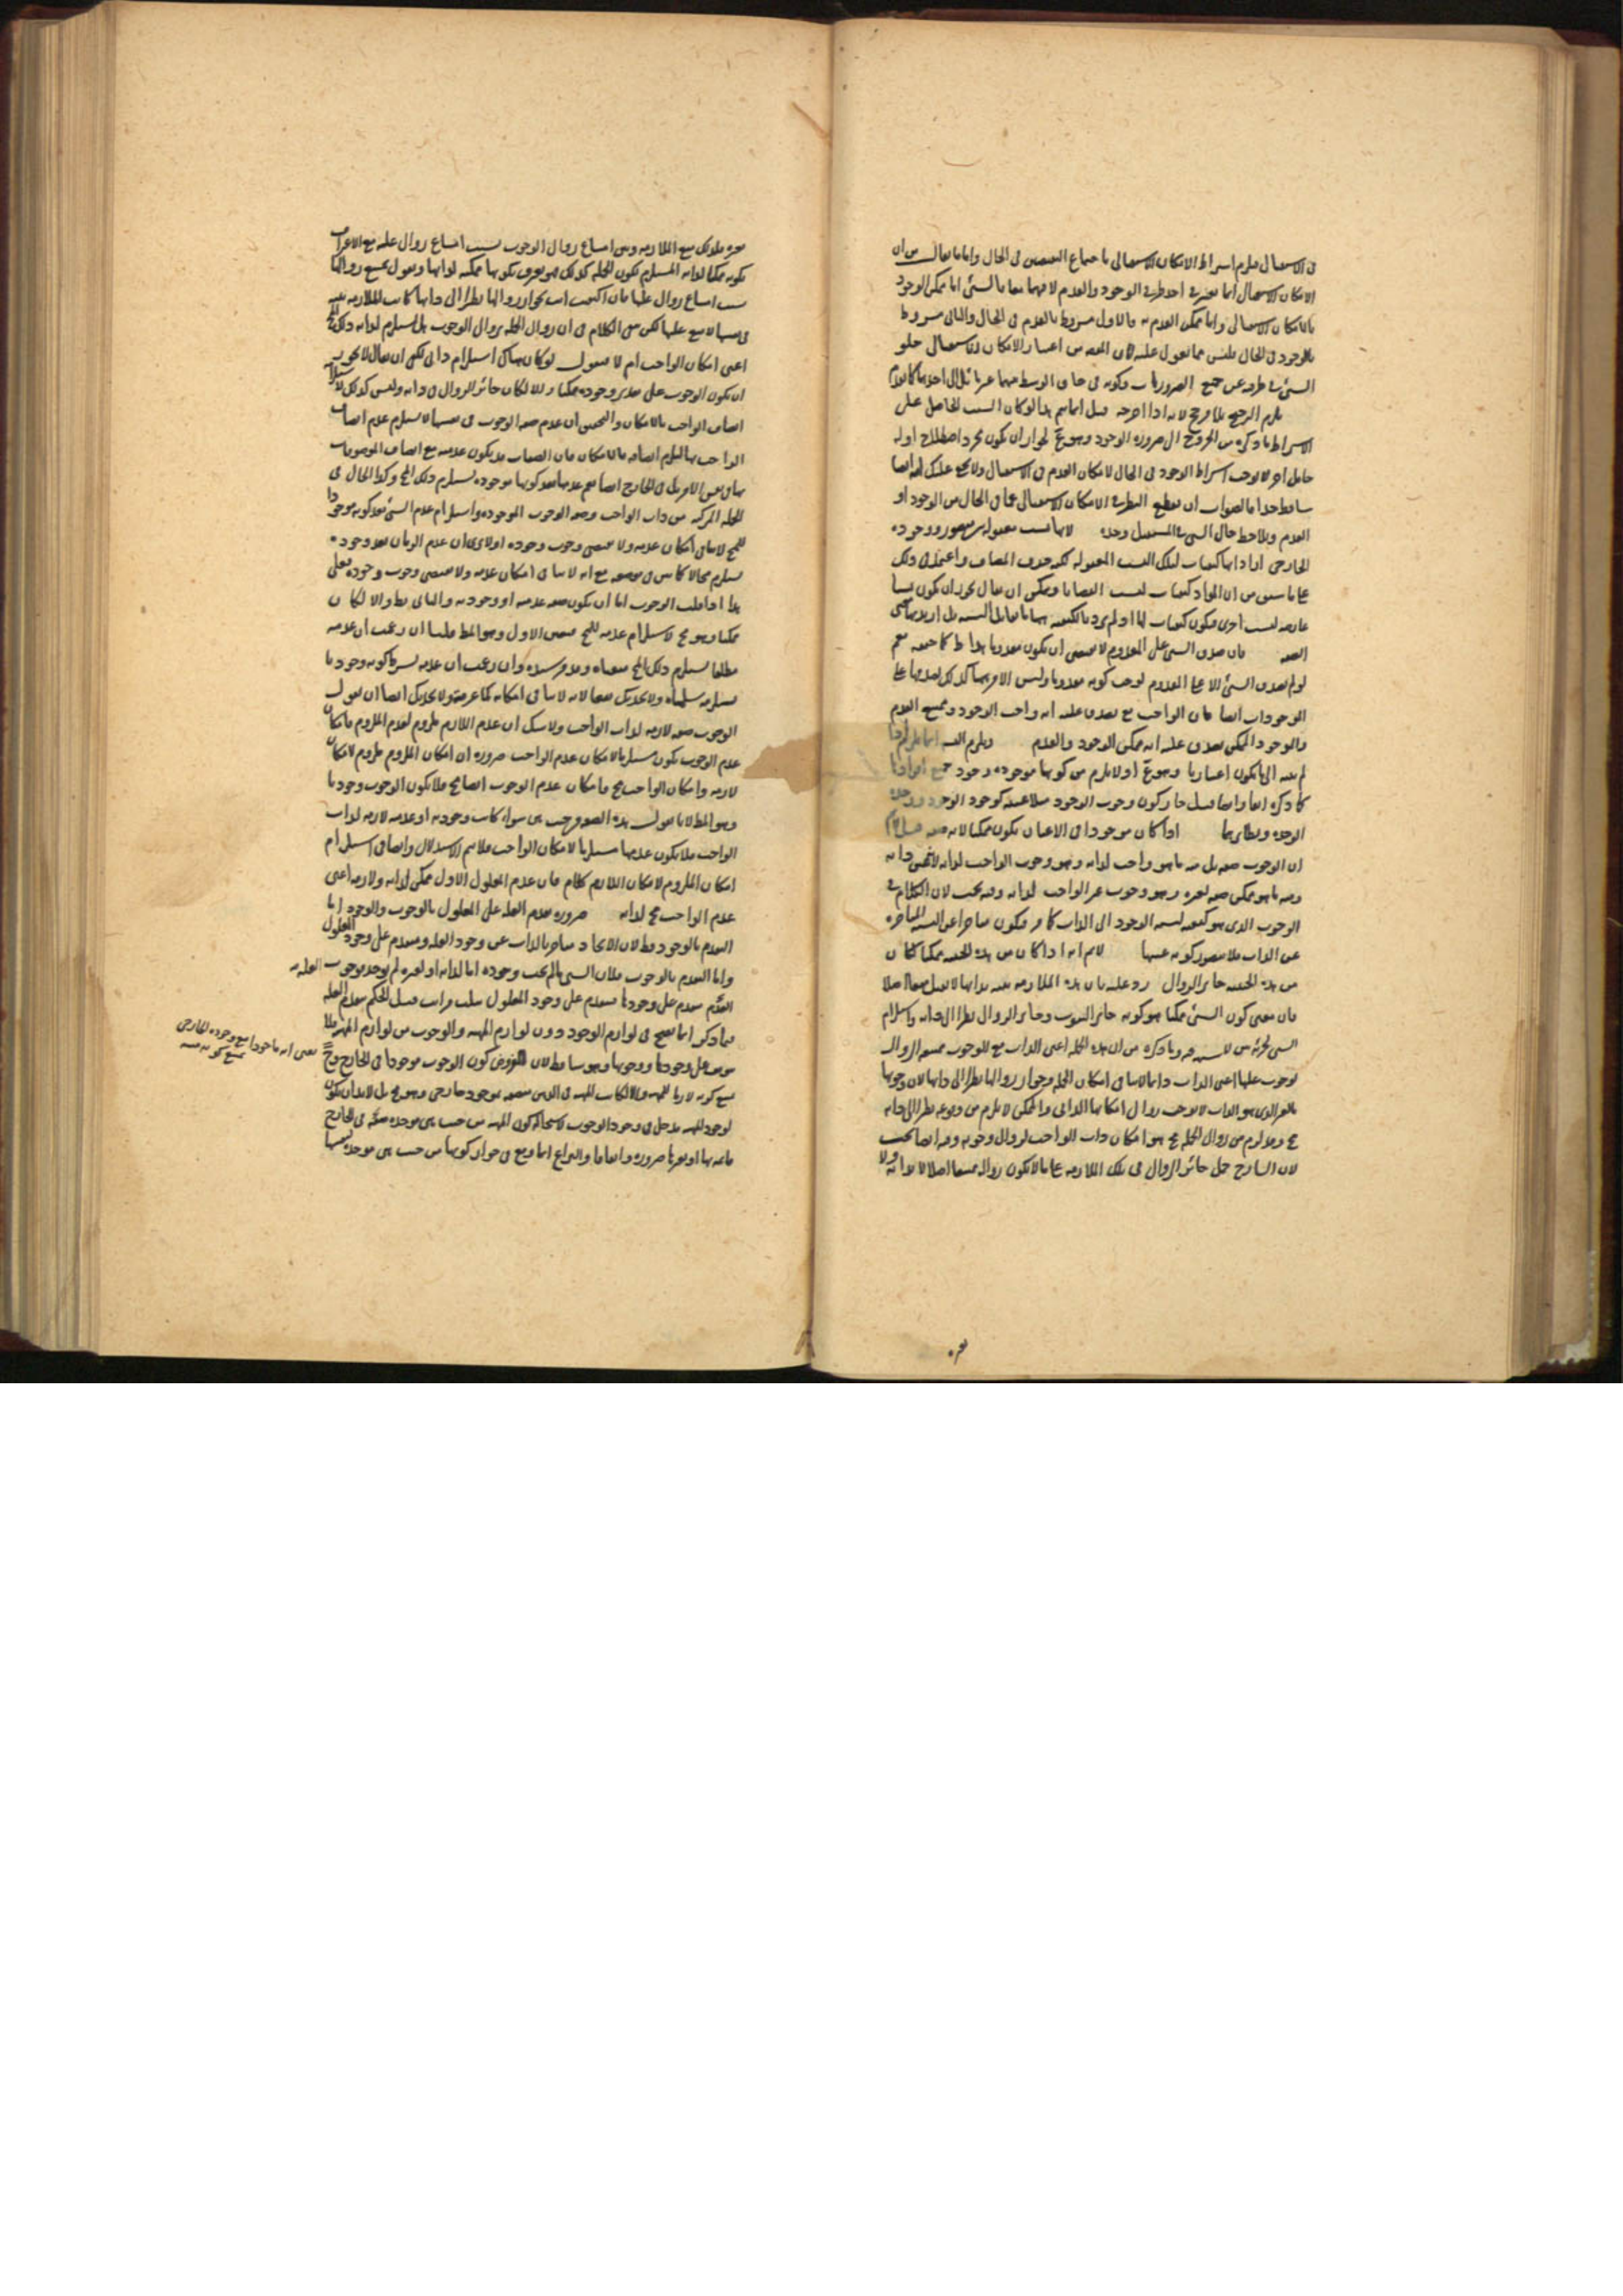 في الاستقبال فيلزم اشتراط الامكان الاستقبالي باجتماع النقيضين في الحال واما ما يقال من ان
الامكان الاستقبالي انما يعتبر في احد طرفي الوجود والعدم لا فيهما معا فالشيء اما ممكن الوجود
بالامكان الاستقبالي واما ممكن العدم به فالاول مشروط بالعدم في الحال والثاني مشروط
بالوجود في الحال فليس مما يعول عليه لان المقصود من اعتبار الامكان الاستقبالي خلو
الشيء في طرفه عن جميع الضروريات وكونه في حاق الوسط منهما غير مائل الى احدهما
يلزم الترجيح بلا مرجح لانه اذا اخرجه قيل انما يتم هذا لو كان السبب الحامل على
الاشتراط ما ذكره من الخروج الى ضرورة الوجود وهو مم لجواز ان يكون مجرد اصطلاح او له
حامل اخر لا يوجب اشتراط الوجود في الحال لامكان العدم في الاستقبال ولا يخفى عليك انه ايضا
ساقط جدا فالصواب ان يقطع النظر في الامكان الاستقبالي عما في الحال من الوجود او
العدم ويلاحظ حال الشيء في المستقبل وحده لانها نسب معقولة بين متصور ووجوده
الخارجي اراد انها كيفيات لتلك النسب المعقولة لكنه حذف المضاف واعتمد في ذلك
على ما سبق من ان المواد كيفيات لنسب القضايا ويمكن ان يقال يجوز ان يكون نسبا
عارضة لنسب اخرى فيكون كيفيات لها اذ لم يرد بالكيفية ههنا ما يقابل النسبة بل اريد بها معنى
الصفة فان صدق الشيء على المعدوم لا يقتضي ان يكون معدوما
لو لم يصدق الشيء الا على المعدوم لوجب كونه معدوما وليس الامر ههنا كذلك لصدقها على
الموجودات ايضا فان الواجب مع يصدق عليه انه واجب الوجود وممتنع العدم
والوجود الممكن يصدق عليه انه ممكن الوجود والعدم ويلزم التس انما يلزم
لم ينته الى ما يكون اعتباريا وهو مم اذ لا يلزم من كونها موجودة وجود جميع افرادها
كما ذكره انفا وايضا قيل جاز كون وجوب الوجود مثلا عينه كوجود الوجود ووحدة
الوحدة ونظائرهما اذا كان موجودا في الاعيان يكون ممكنا لانه صفة قيل
ان الوجوب صفة بل منه ما هو واجب لذاته وهو وجوب الواجب لذاته لانه عين ذاته
ومنه ما هو ممكن صفة لغيره وهو وجوب غير الواجب لذاته وفيه بحث لان الكلام في
الوجوب الذي هو كيفية لنسبة الوجود الى الذات كما مر فيكون متاخرا عن النسبة المتاخرة
عن الذات فلا يتصور كونه عينها لانم انه اذا كان من هذه الحيثية ممكنا كان
من هذه الحيثية جائز الزوال رد عليه بان هذه الملازمة بينة بذاتها لا تقبل منعا اصلا
فان معنى كون الشيء ممكنا هو كونه جائز الثبوت وجائز الزوال نظرا الى ذاته
وما ذكره من ان هذه الجملة اعني الذات مع الوجوب ممتنع الزوال
لوجوب علتها اعني الذات دائما لا ينافي امكان الجملة وجواز زوالها نظرا الى ذاتها لان وجوبها
بالغير الذي هو الذات لا يوجب زوال امكانها الذاتي والممكن لا يلزم من وقوعه نظرا الى ذاته
مح وما لزم من زوال الجملة مح هو امكان ذات الواجب لزوال وجوبه وفيه ايضا بحث
لان الشارح جعل جائز الزوال في تلك الملازمة على ما لا يكون زواله ممتنعا اصلا لا بذاته ولا
بغيره
بغيره فلذلك منع الملازمة وبين امتناع زوال الوجوب بسبب امتناع زوال علته مع الاعتراف
بكونه ممكنا لذاته المستلزم لكون الجملة كذلك فهو يعترف بكونها ممكنة لذاتها ويقول يمتنع زوالها
بسبب امتناع زوال علتها فان اكتفيت انت بجواز زوالها نظرا الى ذاتها كانت الملازمة بينة
في نفسها لا منع عليها لكن بقي الكلام في ان زوال الجملة بزوال الوجوب هل يستلزم لذاته ذلك المح
اعني امكان الواجب ام لا فنقول لو كان هناك استلزام ذاتي لكفى ان يقال لا يجوز
ان يكون الوجوب على تقدير وجوده ممكنا والا لكان جائز الزوال في ذاته وليس كذلك لاستلزامه
اتصاف الواجب بالامكان والتحقيق ان عدم صفة الوجوب في نفسها لا يستلزم عدم اتصاف
الواجب بها ليلزم اتصافه بالامكان فان الصفات قد يكون عدمية مع اتصاف الموصوفات
بها في نفس الامر بل في الخارج ايضا نعم عدمها بعد كونها موجودة يستلزم ذلك المح وكذا الحال في
الجملة المركبة من ذات الواجب وصفة الوجوب الموجودة واستلزام عدم الشيء بعد كونه موجودا
للمح لا ينافي امكان عدمه ولا يقتضي وجوب وجوده اولا ترى ان عدم الزمان بعد وجوده
يستلزم محالا كما بين في موضعه مع انه لا ينافي امكان عدمه ولا يقتضي وجوب وجوده فعلى
هذا اذا قلت الوجوب اما ان يكون صفة عدمية او وجودية والثاني بط والا لكان
ممكنا وهو مح لاستلزام عدمه للمح فتعين الاول وهو المط قلنا ان زعمت ان عدمه
مطلقا يستلزم ذلك المح منعناه وقد مر سنده وان زعمت ان عدمه بشرط كونه وجوديا
يستلزمه سلمناه ولا يجديك نفعا لانه لا ينافي امكانه كما عرفته ولا يجديك ايضا ان تقول
الوجوب صفة لازمة لذات الواجب ولا شك ان عدم اللازم ملزوم لعدم الملزوم فامكان
عدم الوجوب يكون مستلزما لامكان عدم الواجب ضرورة ان امكان الملزوم ملزوم لامكان
لازمه وامكان الواجب مح فامكان عدم الوجوب ايضا مح فلا يكون الوجوب وجوديا
وهو المط لانا نقول هذه الصفة من حيث هي سواء كانت وجودية او عدمية لازمة لذات
الواجب فلا يكون عدمها مستلزما لامكان الواجب فلا يتم الاستدلال وايضا في استلزام
امكان الملزوم لامكان اللازم كلام فان عدم المعلول الاول ممكن لذاته ولازمه اعني
عدم الواجب مح لذاته ضرورة تقدم العلة على المعلول بالوجوب والوجود اما
التقدم بالوجود فظ لان الايجاد متاخر بالذات عن وجود العلة ومتقدم على وجود المعلول
واما التقدم بالوجوب فلان الشيء ما لم يجب وجوده اما لذاته او لغيره لم يوجد فوجوب العلة
المتقدم متقدم على وجودها المتقدم على وجود المعلول بثلث مراتب قيل الحكم بتقدم العلة
فيما ذكر انما يصح في لوازم الوجود دون لوازم المهية والوجوب من لوازم المهية فلا
يتوقف على وجودها ووجوبها وهو ساقط لان المفروض كون الوجوب موجودا في الخارج وح
يمتنع كونه لازما للمهية والا لكانت المهية في الذهن متصفة بموجود خارجي وهو مح بل لابد ان يكون
لوجود المهية مدخل في وجود الوجوب لاستحالة كون المهية من حيث هي موجدة لصفة في الخارج
قائمة بها او بغيرها ضرورة واتفاقا والنزاع انما وقع في جواز كونها من حيث هي موجدة لنفسها
يعني انه ماخوذا مع وجوده الخارجي
يمتنع كونه نفسه